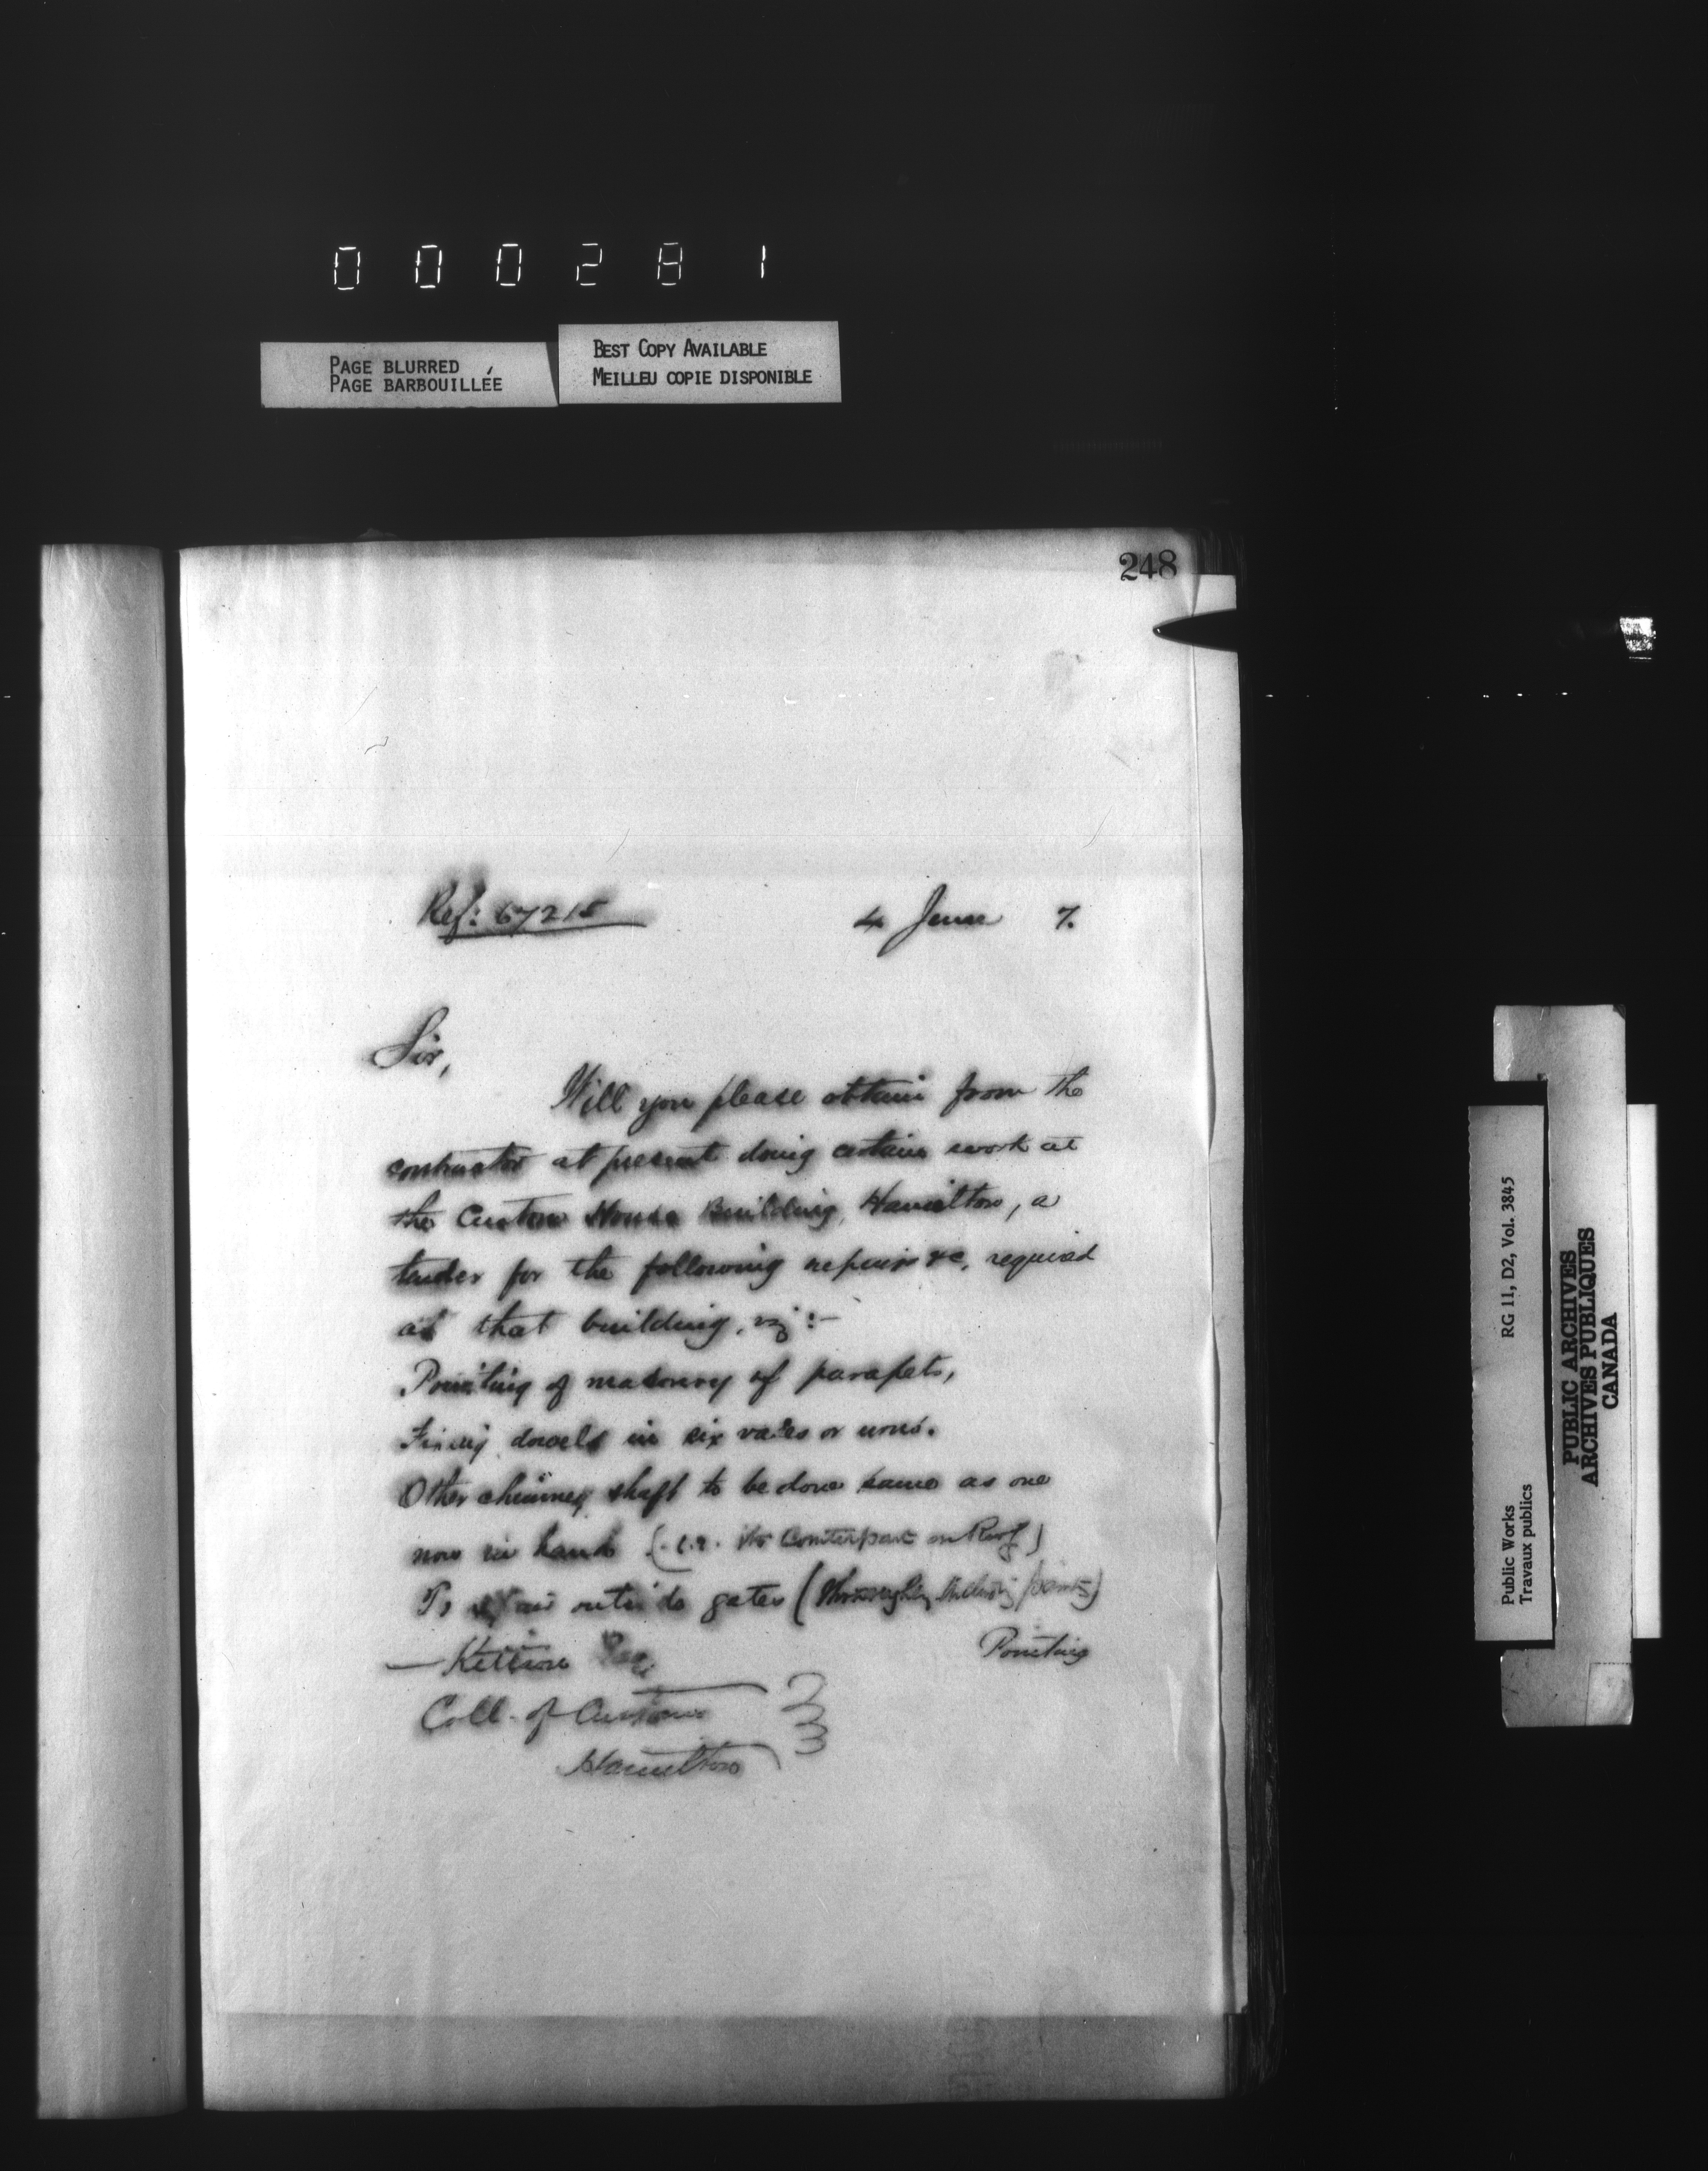 000281
PAGE BLURRED
PAGE BARBOUILLÉE
BEST COPY AVAILABLE
MEILLEU COPIE DISPONIBLE
248
Ref: 67215
4 June 7.
Sir,
Will you please obtain from the
contractor at present doing certain work at
the Custom House Building, Hamilton, a
tender for the following repairs &c, required
at that building, viz:-
Pointing of masonry of parapets,
Fixing dowels in six vases or urns.
Other chimney shaft to be done same as one
now in hand (i.e. its Counterpart on Roof)
To repair outside gates (thoroughly including
— Kittson Esq.
Pointing
Coll. of Customs
Hamilton
RG 11, D2, Vol. 3845
Public Works
Travaux publics
PUBLIC ARCHIVES
ARCHIVES PUBLIQUES
CANADA